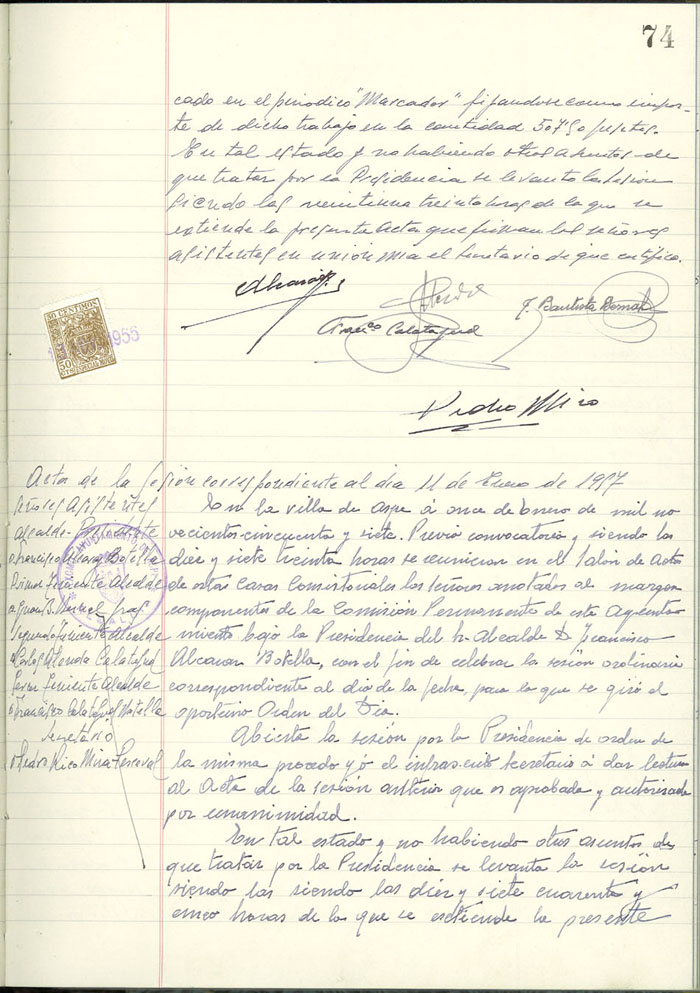 74
cado en el periodico "Marcador" fijandose como impor-
te de dicho trabajo en la cantidad 507'50 pesetas.
En tal estado y no habiendo otros asuntos de
que tratar por la Presidencia se levanto la sesion
siendo las veintiuna treinta horas de la que se
extiende la presente acta que firman los señores
asistentes en union mia el Secretario de que certifico.
50 CENTIMOS
1956
Franco Calatayud
J. Bautista
Pedro Miro
Acta de la sesion correspondiente al dia 11 de Enero de 1957
Señores Asistentes
Alcalde-Presidente
Francisco Alcaraz Botella
Primer Teniente Alcalde
Juan B.
Segundo Teniente Alcalde
Carlos Calatayud
Tercer Teniente Alcalde
Francisco Calatayud
Secretario
Pedro Mira
En la villa de Aspe á once de Enero de mil no
vecientos cincuenta y siete. Previa convocatoria y siendo las
diez y siete treinta horas se reunieron en el Salon de Actos
de estas Casas Consistoriales los señores anotados al margen
componentes de la Comisión Permanente de este Ayunta
miento bajo la Presidencia del Sr. Alcalde D. Francisco
Alcaraz Botella, con el fin de celebrar la sesión ordinaria
correspondiente al dia de la fecha, para lo que se giró el
oportuno Orden del Dia.
Abierta la sesión por la Presidencia de orden de
la misma procedo yó el infrascrito Secretario á dar lectura
al Acta de la sesión anterior que es aprobada y autorizada
por unanimidad.
En tal estado y no habiendo otros asuntos de
que tratar por la Presidencia se levanta la sesión
siendo las siendo las diez y siete cuarenta y
cinco horas de la que se extiende la presente